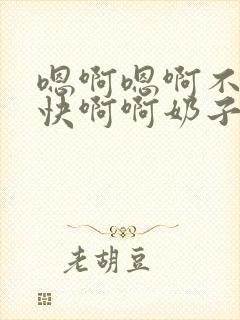 嗯啊嗯啊不
快啊啊奶子
老胡豆